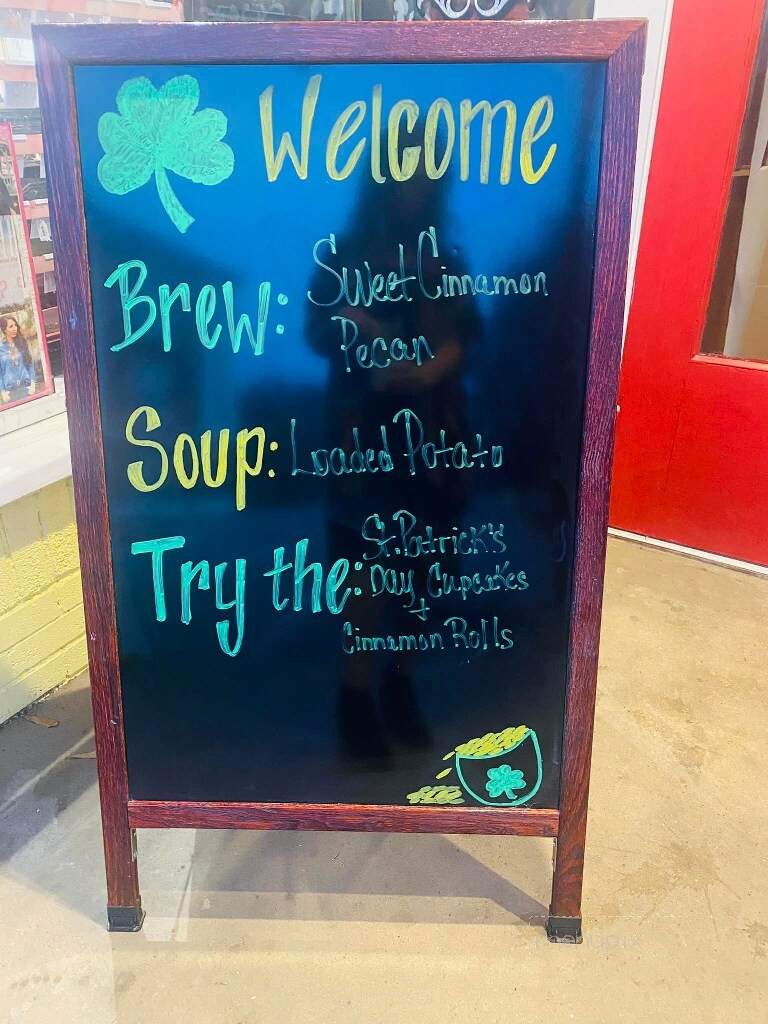 Welcome
Brew: Sweet Cinnamon
Pecan
Soup: Loaded Potato
Try the: St. Patrick's
Day Cupcakes
+
Cinnamon Rolls